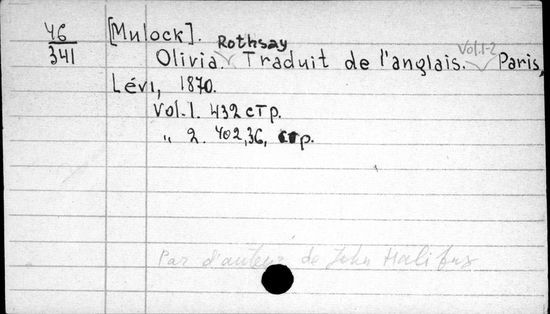 46
341
[Mulock].
Olivia Rothsay. Traduit de l'anglais. Vol.1-2 Paris,
Lévi, 1870.
Vol.1. 432 стр.
„ 2. 402,36, стр.
Par d'auteur de John Halifax